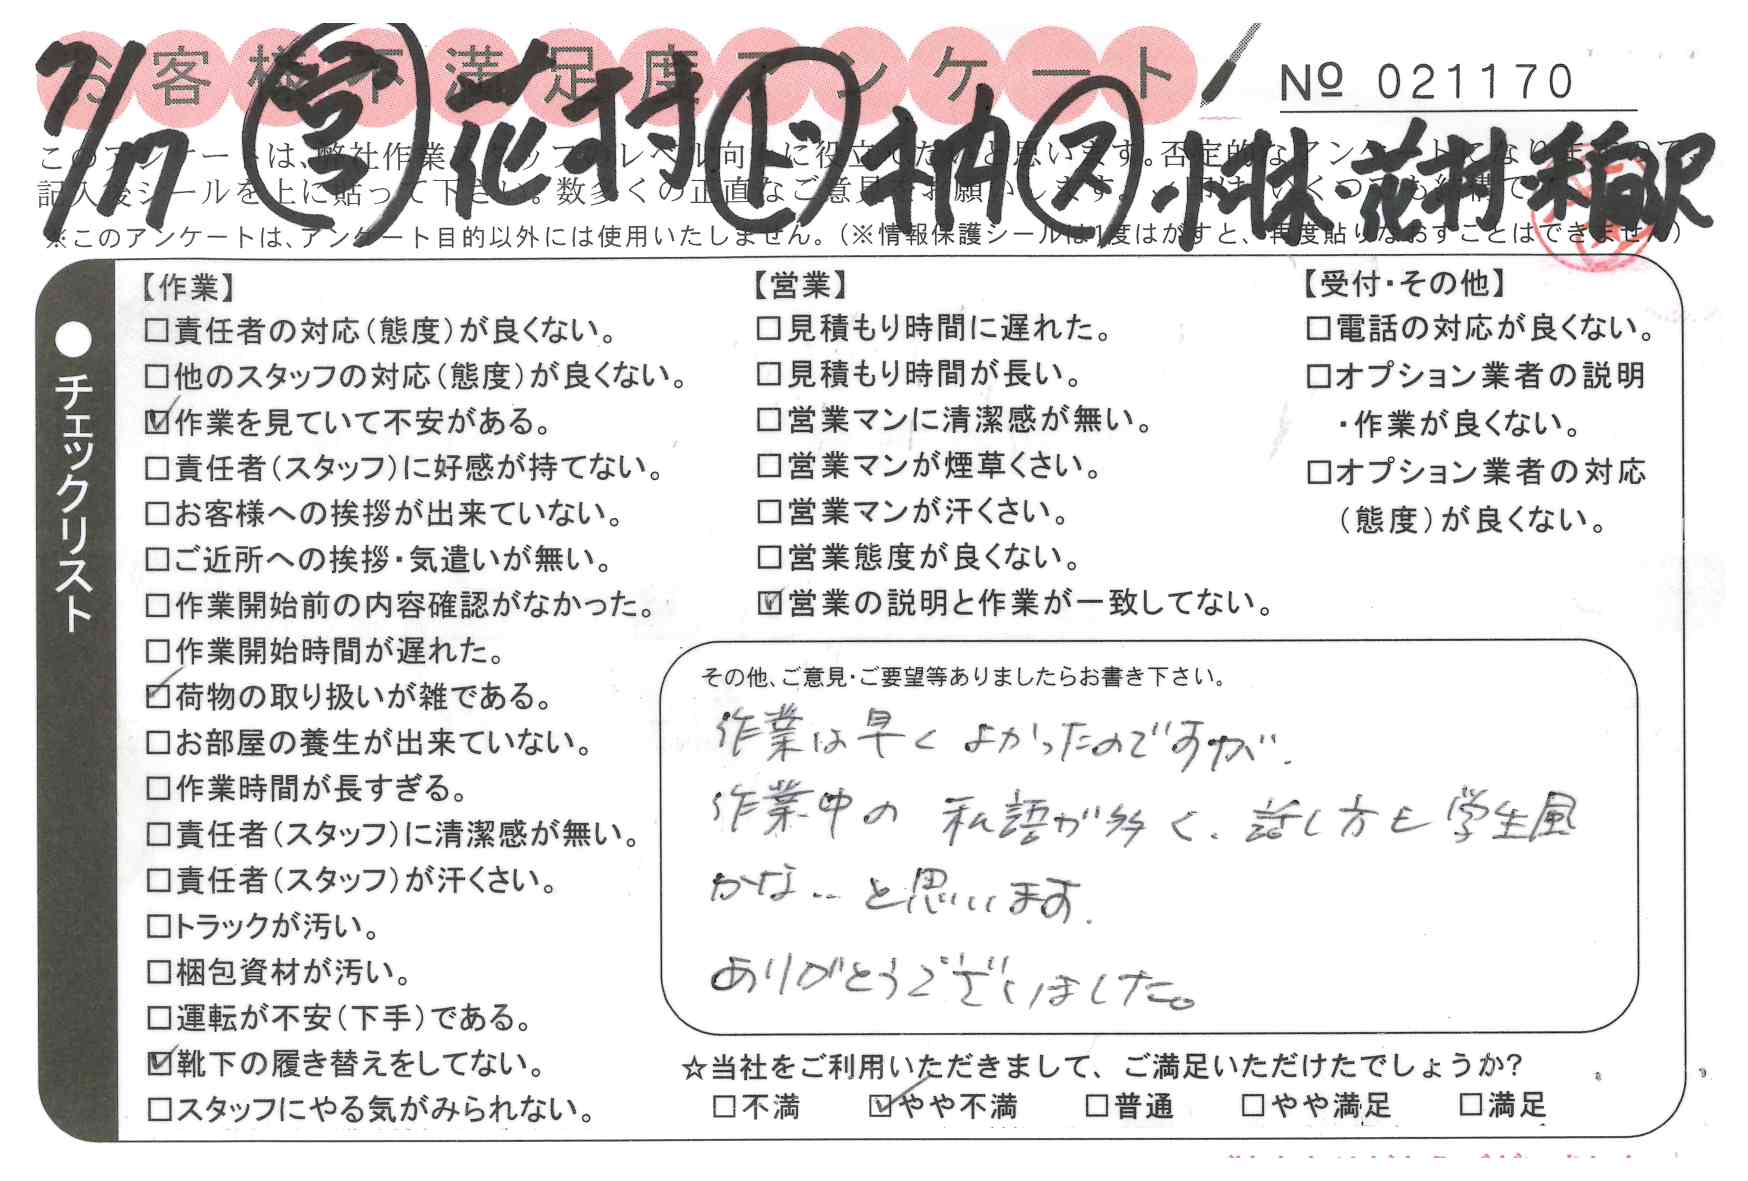 お客様不満足度アンケート
№ 021170
7/17 営 花村 ド 柚 ス 小林・花村・稲沢
このアンケートは、弊社作業スタッフのレベル向上に役立てたいと思います。否定的なアンケートになりますので、
記入後シールを上に貼って下さい。数多くの正直なご意見をお願いします。
※このアンケートは、アンケート目的以外には使用いたしません。(※情報保護シールは1度はがすと、再度貼りなおすことはできません)
●チェックリスト
【作業】
□責任者の対応(態度)が良くない。
□他のスタッフの対応(態度)が良くない。
☑作業を見ていて不安がある。
□責任者(スタッフ)に好感が持てない。
□お客様への挨拶が出来ていない。
□ご近所への挨拶・気遣いが無い。
□作業開始前の内容確認がなかった。
□作業開始時間が遅れた。
☑荷物の取り扱いが雑である。
□お部屋の養生が出来ていない。
□作業時間が長すぎる。
□責任者(スタッフ)に清潔感が無い。
□責任者(スタッフ)が汗くさい。
□トラックが汚い。
□梱包資材が汚い。
□運転が不安(下手)である。
☑靴下の履き替えをしてない。
□スタッフにやる気がみられない。
【営業】
□見積もり時間に遅れた。
□見積もり時間が長い。
□営業マンに清潔感が無い。
□営業マンが煙草くさい。
□営業マンが汗くさい。
□営業態度が良くない。
☑営業の説明と作業が一致してない。
【受付・その他】
□電話の対応が良くない。
□オプション業者の説明
・作業が良くない。
□オプション業者の対応
(態度)が良くない。
その他、ご意見・ご要望等ありましたらお書き下さい。
作業は早くよかったのですが、
作業中の私語が多く、話し方も学生風
かな..と思います。
ありがとうございました。
☆当社をご利用いただきまして、ご満足いただけたでしょうか?
□不満 ☑やや不満 □普通 □やや満足 □満足